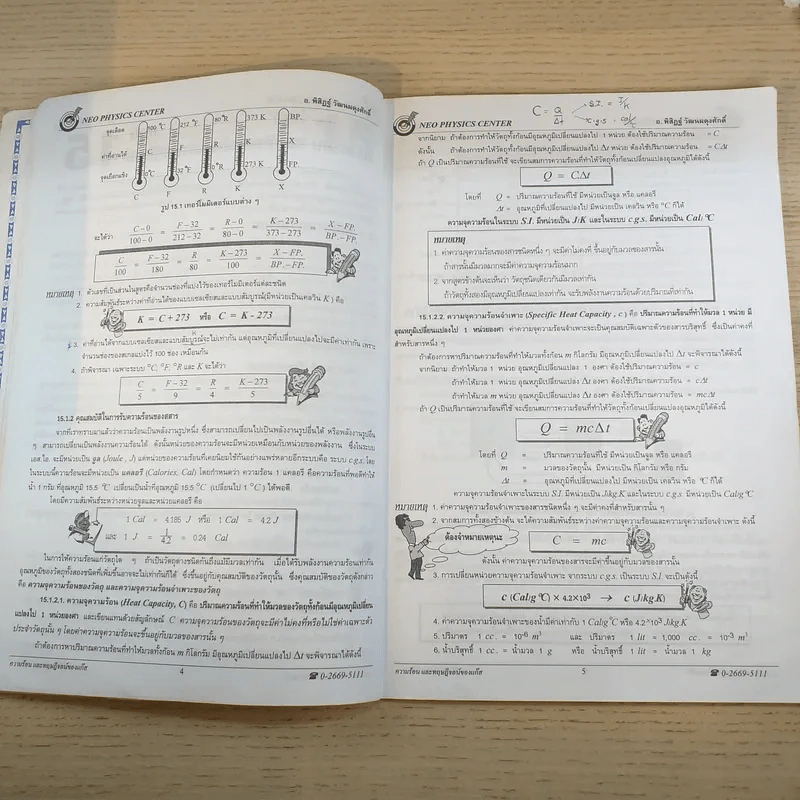 NEO PHYSICS CENTER
อ. พิสิฏฐ์ วัฒนผดุงศักดิ์
จุดเดือด 100 °C 212 °F 80 °R 373 K BP.
ค่าที่อ่านได้ C F R K X
จุดเยือกแข็ง 0°C 32 °F 0 °R 273 K FP.
C F R K X
รูป 15.1 เทอร์โมมิเตอร์แบบต่าง ๆ
จะได้ว่า C-0/100-0 = F-32/212-32 = R-0/80-0 = K-273/373-273 = X-FP./BP.-FP.
C/100 = F-32/180 = R/80 = K-273/100 = X-FP./BP.-FP.
หมายเหตุ 1. ตัวเลขที่เป็นส่วนในสูตรคือจำนวนช่องที่แบ่งไว้ของเทอร์โมมิเตอร์แต่ละชนิด
2. ความสัมพันธ์ระหว่างค่าที่อ่านได้ของแบบเซลเซียสและแบบสัมบูรณ์(มีหน่วยเป็นเคลวิน K ) คือ
K = C+273 หรือ C = K-273
3. ค่าที่อ่านได้จากแบบเซลเซียสและแบบสัมบูรณ์จะไม่เท่ากัน แต่อุณหภูมิที่เปลี่ยนแปลงไปจะมีค่าเท่ากัน เพราะ
จำนวนช่องของสเกลแบ่งไว้ 100 ช่อง เหมือนกัน
4. ถ้าพิจารณา เฉพาะระบบ °C, °F, °R และ K จะได้ว่า
C/5 = F-32/9 = R/4 = K-273/5
15.1.2 คุณสมบัติในการรับความร้อนของสาร
จากที่เราทราบมาแล้วว่าความร้อนเป็นพลังงานรูปหนึ่ง ซึ่งสามารถเปลี่ยนไปเป็นพลังงานรูปอื่นได้ หรือพลังงานรูปอื่น
ๆ สามารถเปลี่ยนเป็นพลังงานความร้อนได้ ดังนั้นหน่วยของความร้อนจะมีหน่วยเหมือนกับหน่วยของพลังงาน ซึ่งในระบบ
เอส.ไอ. จะมีหน่วยเป็น จูล (Joule , J) แต่หน่วยของความร้อนที่เคยนิยมใช้กันอย่างแพร่หลายอีกระบบคือ ระบบ c.g.s. โดย
ในระบบนี้ความร้อนจะมีหน่วยเป็น แคลอรี (Calories, Cal) โดยกำหนดว่า ความร้อน 1 แคลอรี คือความร้อนที่พอดีทำให้
น้ำ 1 กรัม ที่อุณหภูมิ 15.5 °C เปลี่ยนเป็นน้ำที่อุณหภูมิ 15.5 °C (เปลี่ยนไป 1 °C ) ได้พอดี
โดยมีความสัมพันธ์ระหว่างหน่วยจูลและหน่วยแคลอรี คือ
1 Cal = 4.185 J หรือ 1 Cal = 4.2 J
และ 1 J = 1/4.2 = 0.24 Cal
ในการให้ความร้อนแก่วัตถุใด ๆ ถ้าเป็นวัตถุต่างชนิดกันถึงแม้มีมวลเท่ากัน เมื่อได้รับพลังงานความร้อนเท่ากัน
อุณหภูมิของวัตถุทั้งสองชนิดที่เพิ่มขึ้นอาจจะไม่เท่ากันก็ได้ ซึ่งขึ้นอยู่กับคุณสมบัติของวัตถุนั้น ซึ่งคุณสมบัติของวัตถุดังกล่าว
คือ ความจุความร้อนของวัตถุ และความจุความร้อนจำเพาะของวัตถุ
15.1.2.1. ความจุความร้อน (Heat Capacity, C) คือ ปริมาณความร้อนที่ทำให้มวลของวัตถุทั้งก้อนมีอุณหภูมิเปลี่ยน
แปลงไป 1 หน่วยองศา และเขียนแทนด้วยสัญลักษณ์ C ความจุความร้อนของวัตถุจะมีค่าไม่คงที่หรือไม่ใช่ค่าเฉพาะตัว
ประจำวัตถุนั้น ๆ โดยค่าความจุความร้อนจะขึ้นอยู่กับมวลของสารนั้น ๆ
ถ้าต้องการหาปริมาณความร้อนที่ทำให้มวลทั้งก้อน m กิโลกรัม มีอุณหภูมิเปลี่ยนแปลงไป Δt จะพิจารณาได้ดังนี้
ความร้อน และทฤษฎีจลน์ของแก๊ส 4 ☎ 0-2669-5111
C = Q/Δt → S.I. = J/K
→ c.g.s = cal/°C
NEO PHYSICS CENTER
อ. พิสิฏฐ์ วัฒนผดุงศักดิ์
จากนิยาม ถ้าต้องการทำให้วัตถุทั้งก้อนมีอุณหภูมิเปลี่ยนแปลงไป 1 หน่วย ต้องใช้ปริมาณความร้อน = C
ดังนั้น ถ้าต้องการทำให้วัตถุทั้งก้อนมีอุณหภูมิเปลี่ยนแปลงไป Δt หน่วย ต้องใช้ปริมาณความร้อน = CΔt
ถ้า Q เป็นปริมาณความร้อนที่ใช้ จะเขียนสมการความร้อนที่ทำให้วัตถุทั้งก้อนเปลี่ยนแปลงอุณหภูมิได้ดังนี้
Q = CΔt
โดยที่ Q = ปริมาณความร้อนที่ใช้ มีหน่วยเป็นจูล หรือ แคลอรี
Δt = อุณหภูมิที่เปลี่ยนแปลงไป มีหน่วยเป็น เคลวิน หรือ °C ก็ได้
ความจุความร้อนในระบบ S.I. มีหน่วยเป็น J/K และในระบบ c.g.s. มีหน่วยเป็น Cal/°C
หมายเหตุ
1. ค่าความจุความร้อนของสารชนิดหนึ่ง ๆ จะมีค่าไม่คงที่ ขึ้นอยู่กับมวลของสารนั้น
ถ้าสารนั้นมีมวลมากจะมีค่าความจุความร้อนมาก
2. จากสูตรข้างต้นจะเห็นว่า วัตถุชนิดเดียวกันมีมวลเท่ากัน
ถ้าวัตถุทั้งสองมีอุณหภูมิเปลี่ยนแปลงเท่ากัน จะรับพลังงานความร้อนด้วยปริมาณที่เท่ากัน
15.1.2.2. ความจุความร้อนจำเพาะ (Specific Heat Capacity , c ) คือ ปริมาณความร้อนที่ทำให้มวล 1 หน่วย มี
อุณหภูมิเปลี่ยนแปลงไป 1 หน่วยองศา ค่าความจุความร้อนจำเพาะจะเป็นคุณสมบัติเฉพาะตัวของสารบริสุทธิ์ ซึ่งเป็นค่าคงที่
สำหรับสารหนึ่ง ๆ
ถ้าต้องการหาปริมาณความร้อนที่ทำให้มวลทั้งก้อน m กิโลกรัม มีอุณหภูมิเปลี่ยนแปลงไป Δt จะพิจารณาได้ดังนี้
จากนิยาม ถ้าทำให้มวล 1 หน่วย อุณหภูมิเปลี่ยนแปลงไป 1 องศา ต้องใช้ปริมาณความร้อน = c
ถ้าทำให้มวล 1 หน่วย อุณหภูมิเปลี่ยนแปลงไป Δt องศา ต้องใช้ปริมาณความร้อน = cΔt
ถ้าทำให้มวล m หน่วย อุณหภูมิเปลี่ยนแปลงไป Δt องศา ต้องใช้ปริมาณความร้อน = mcΔt
ถ้า Q เป็นปริมาณความร้อนที่ใช้ จะเขียนสมการความร้อนที่ทำให้วัตถุทั้งก้อนเปลี่ยนแปลงอุณหภูมิได้ดังนี้
Q = mcΔt
โดยที่ Q = ปริมาณความร้อนที่ใช้ มีหน่วยเป็นจูล หรือ แคลอรี
m = มวลของวัตถุนั้น มีหน่วยเป็น กิโลกรัม หรือ กรัม
Δt = อุณหภูมิที่เปลี่ยนแปลงไป มีหน่วยเป็น เคลวิน หรือ °C ก็ได้
ความจุความร้อนจำเพาะในระบบ S.I. มีหน่วยเป็น J/kg.K และในระบบ c.g.s. มีหน่วยเป็น Cal/g °C
หมายเหตุ 1. ค่าความจุความร้อนจำเพาะของสารชนิดหนึ่ง ๆ จะมีค่าคงที่สำหรับสารนั้น ๆ
2. จากสมการทั้งสองข้างต้น จะได้ความสัมพันธ์ระหว่างค่าความจุความร้อนและความจุความร้อนจำเพาะ ดังนี้
ต้องจำหมายเหตุนะ
C = mc
ดังนั้น ค่าความจุความร้อนของสารจะมีค่าขึ้นอยู่กับมวลของสารนั้น
3. การเปลี่ยนหน่วยความจุความร้อนจำเพาะ จากระบบ c.g.s. เป็นระบบ S.I. จะเป็นดังนี้
c (Cal/g °C) × 4.2×10³ → c (J/kg.K)
4. ค่าความจุความร้อนจำเพาะของน้ำมีค่าเท่ากับ 1 Cal/g°C หรือ 4.2×10³ J/kg.K
5. ปริมาตร 1 cc. = 10⁻⁶ m³ และ ปริมาตร 1 lit = 1,000 cc. = 10⁻³ m³
6. น้ำบริสุทธิ์ 1 cc. = น้ำมวล 1 g หรือ น้ำบริสุทธิ์ 1 lit = น้ำมวล 1 kg
ความร้อน และทฤษฎีจลน์ของแก๊ส 5 ☎ 0-2669-5111